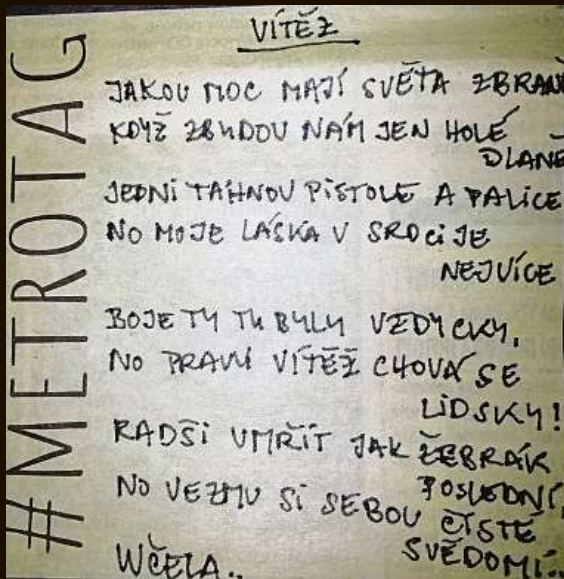 #METROTAG
VÍTĚZ
JAKOU MOC MAJÍ SVĚTA ZBRANĚ
KDYŽ ZBUDOU NÁM JEN HOLÉ
DLANĚ
JEDNI TAHNOU PISTOLE A PALICE
NO MOJE LÁSKA V SRDCI JE
NEJVÍCE
BOJE TY TU BYLY VŽDYCKY,
NO PRAVÝ VÍTĚZ CHOVÁ SE
LIDSKY!
RADŠI UMŘÍT JAK ŽEBRÁK
POSLEDNÍ,
NO VEZMU SI SEBOU ČISTÉ
SVĚDOMÍ..
WČELA..